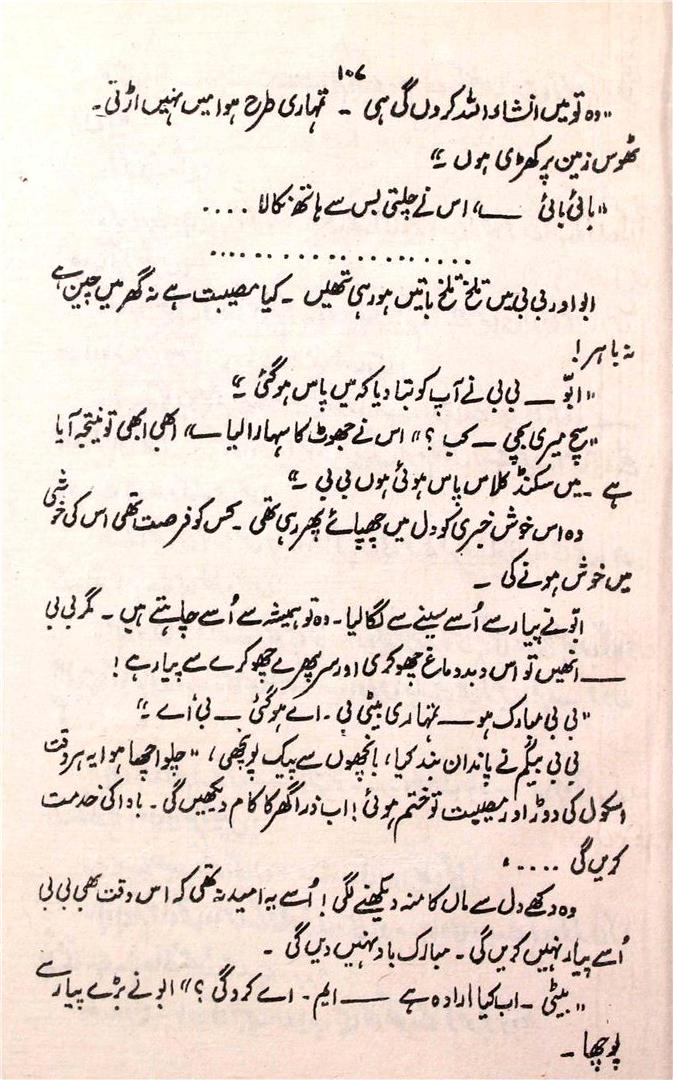 ۱۰۶
"وہ تو میں انشاء اللہ کروں گی ہی ۔ تمہاری طرح ہوا میں نہیں اڑتی۔
ٹھوس زمین پر کھڑی ہوں ۔"
"بائی بائی ــــ" اس نے چلتی بس سے ہاتھ نکالا ....
....................
ابو اور بی بی میں تلخ تلخ باتیں ہو رہی تھیں ۔ کیا مصیبت ہے نہ گھر میں چین ہے
نہ باہر!
"ابّو ــــ بی بی نے آپ کو بتا دیا کہ میں پاس ہو گئی ۔"
"سچ میری بچی ــ کب ؟" اس نے جھوٹ کا سہارا لیا ــ" ابھی ابھی تو نتیجہ آیا
ہے ۔ میں سکنڈ کلاس پاس ہوئی ہوں بی بی ۔"
وہ اس خوش خبری کو دل میں چھپائے پھر رہی تھی ۔ کس کو فرصت تھی اس کی خوشی
میں خوش ہونے کی ۔
ابّو نے پیار سے اُسے سینے سے لگا لیا ۔ وہ تو ہمیشہ سے اُسے چاہتے ہیں ۔ مگر بی بی
ــــ انھیں تو اس دبد دماغ چھوکری اور سر پھرے چھوکرے سے پیار ہے !
"بی بی مبارک ہو ــــ تمہاری بیٹی بی ۔ اے ہو گئی ــــ بی اُے ۔"
بی بی بیگم نے پاندان بند کیا، بانچھوں سے پیک پونچھی، "چلو اچھا ہوا یہ ہر وقت
اسکول کی دوڑ اور مصیبت تو ختم ہوئی ! اب ذرا گھر کا کام دیکھیں گی ۔ باوا کی خدمت
کریں گی .....
وہ دکھے دل سے ماں کا منہ دیکھنے لگی ! اُسے یہ امید نہ تھی کہ اس وقت بھی بی بی
اُسے پیار نہیں کریں گی ۔ مبارک باد نہیں دیں گی ۔
"بیٹی ۔ اب کیا ارادہ ہے ــــ ایم ۔ اے کرو گی ؟" ابو نے بڑے پیار سے
پوچھا ۔